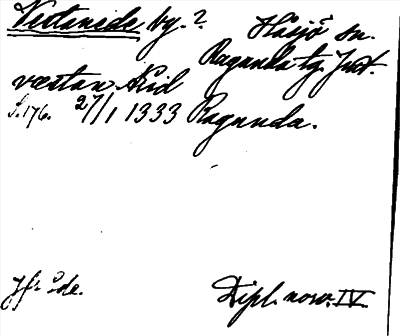 Vestanede, by.? Håsjö sn.
Ragunda tg. Jmt.
væstan Æid
S. 176. 27/1 1333 Ragunda.
Jfr Ede. Dipl. norv. IV.